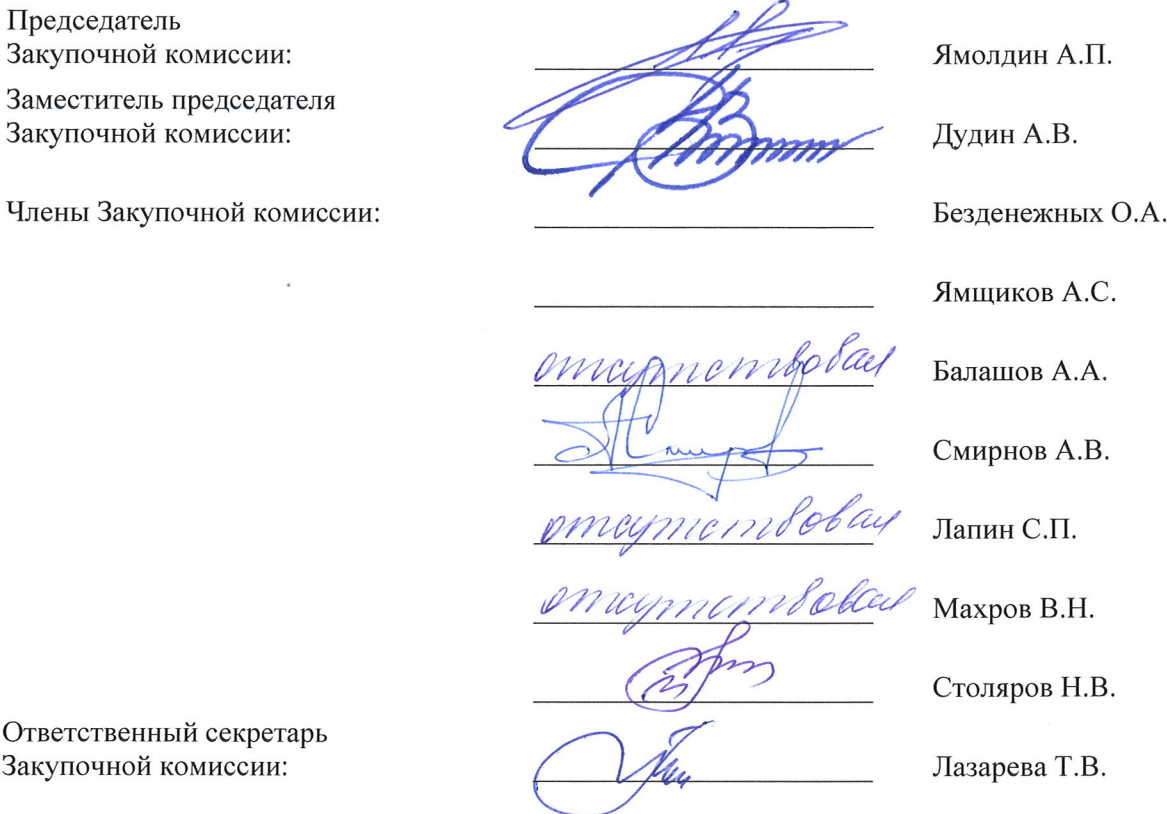 Председатель
Закупочной комиссии: Ямолдин А.П.
Заместитель председателя
Закупочной комиссии: Дудин А.В.
Члены Закупочной комиссии: Безденежных О.А.
Ямщиков А.С.
отсутствовал Балашов А.А.
Смирнов А.В.
отсутствовал Лапин С.П.
отсутствовал Махров В.Н.
Столяров Н.В.
Ответственный секретарь
Закупочной комиссии: Лазарева Т.В.